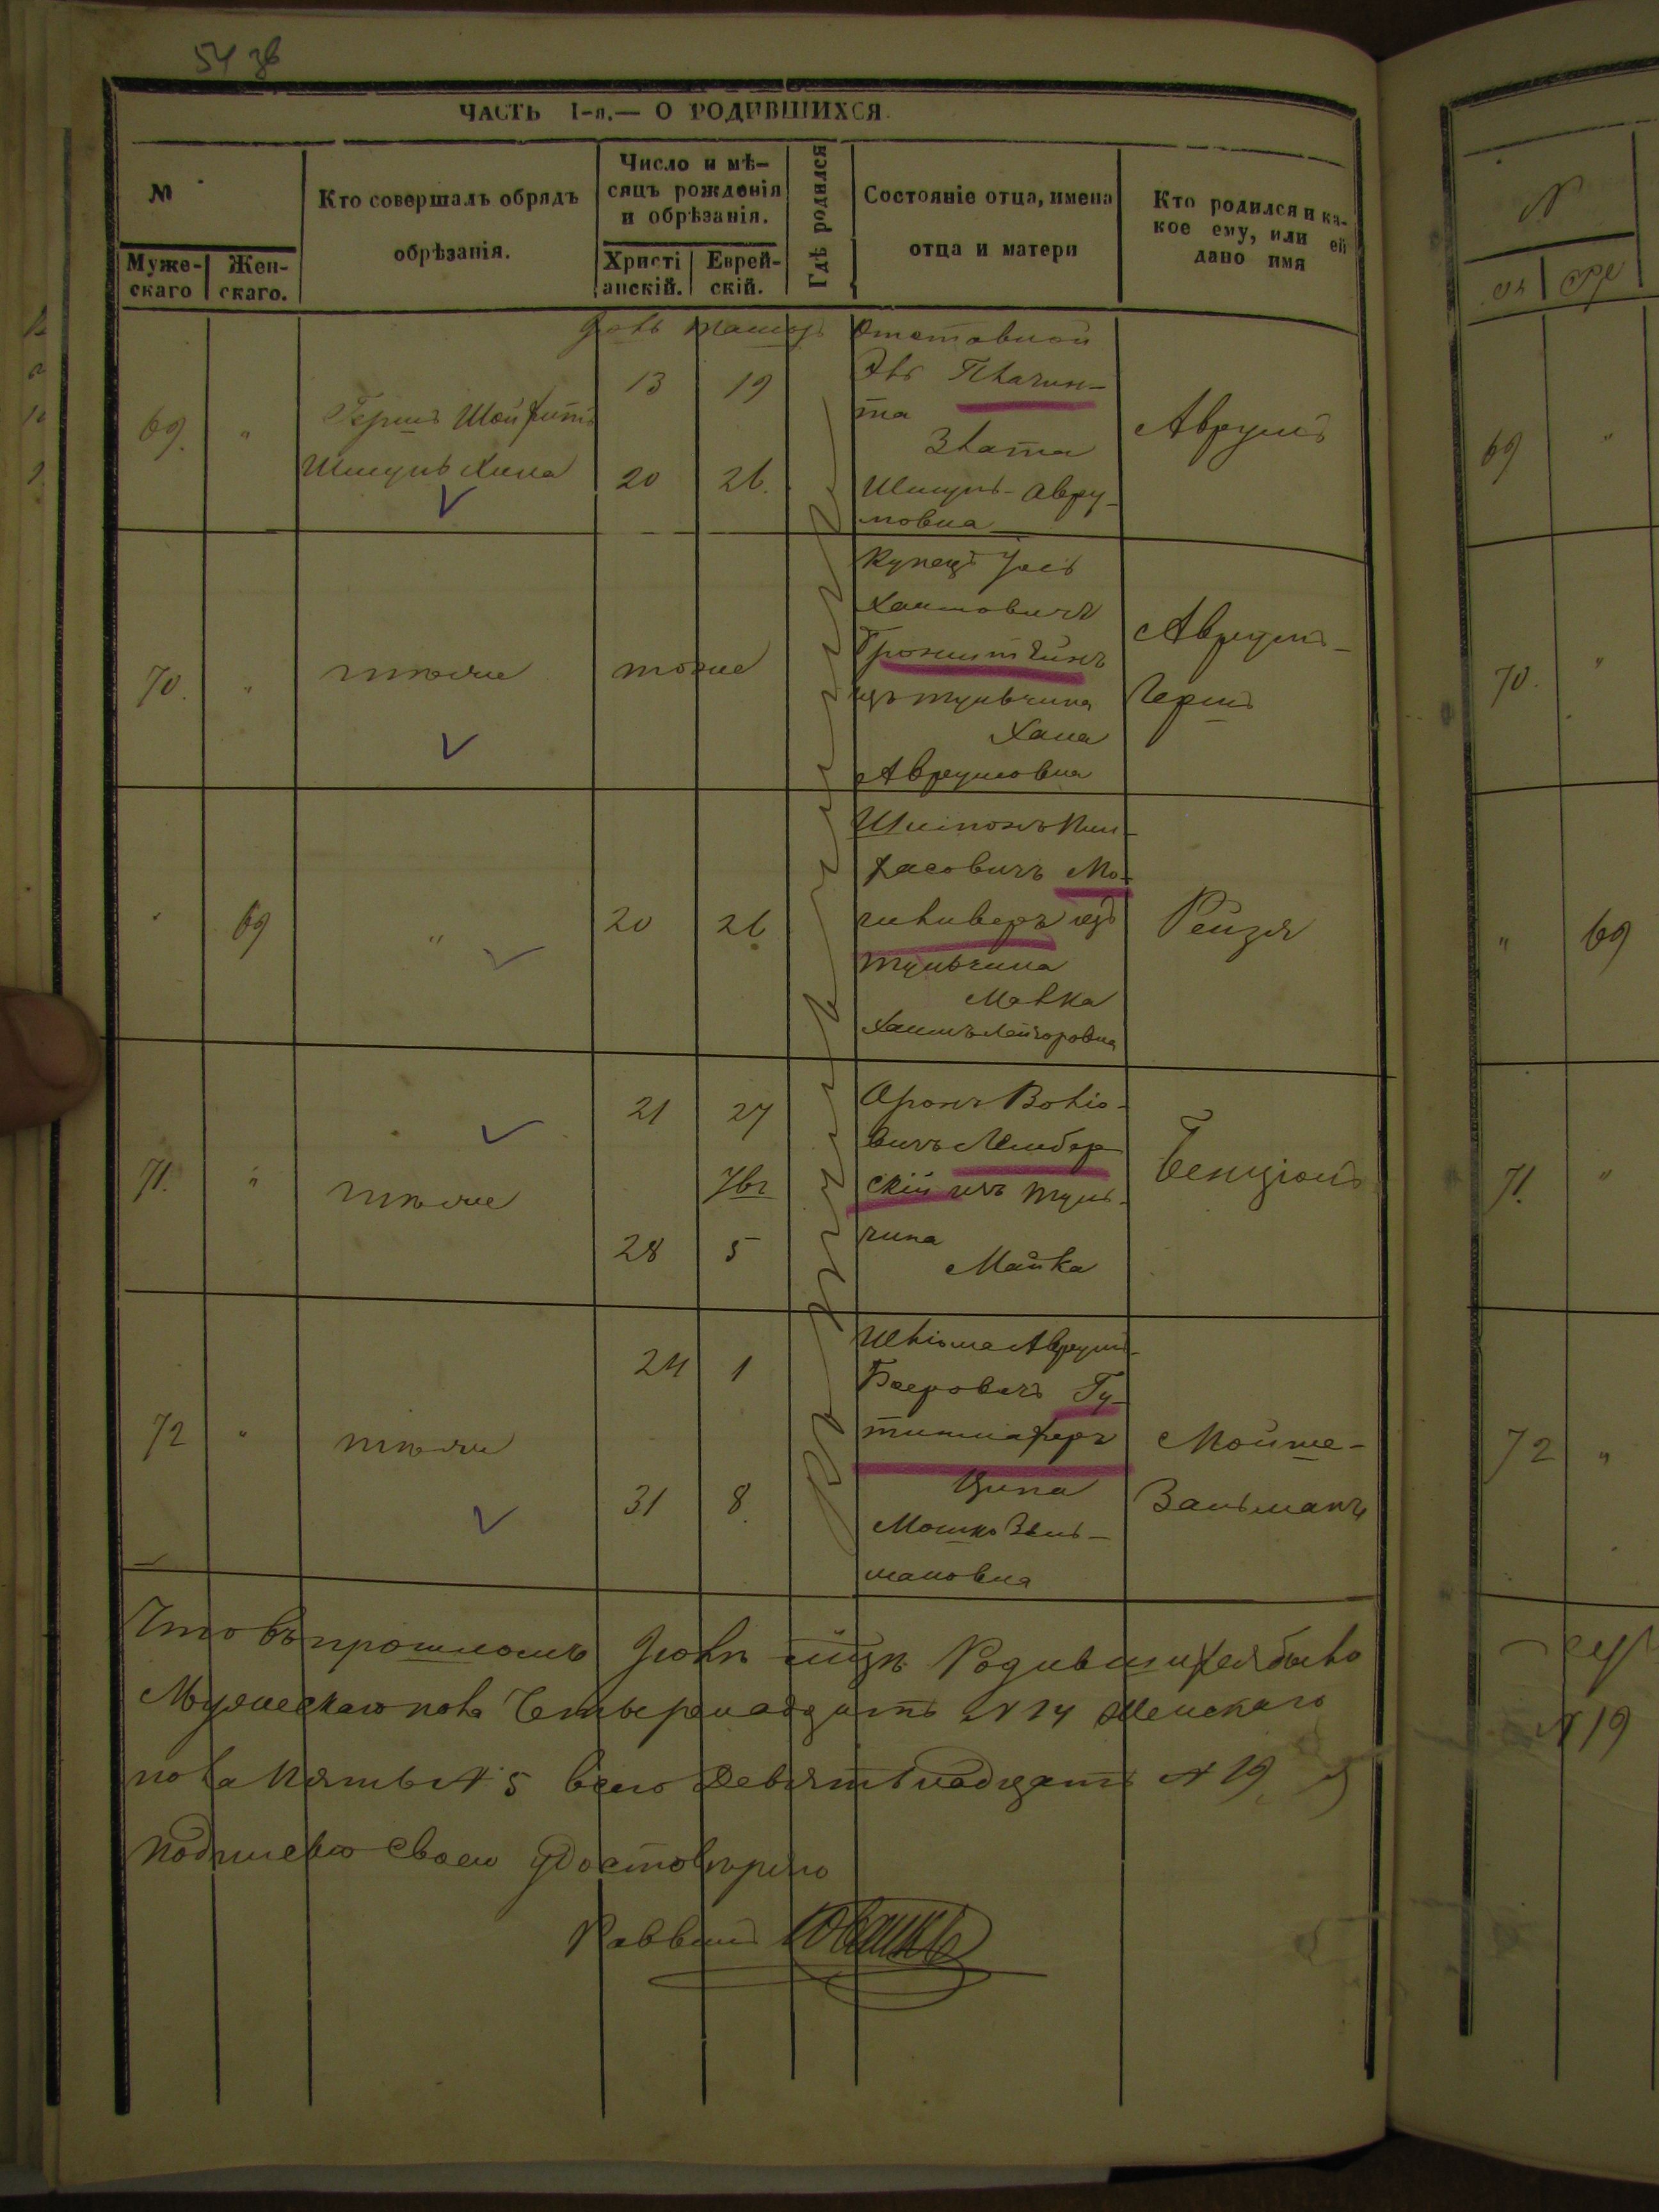 54 зв
ЧАСТЬ I-я.— О РОДИВШИХСЯ.
№
Муже-
скаго
Жен-
скаго.
Кто совершалъ обрядъ
обрѣзанія.
Число и мѣ-
сяцъ рожденія
и обрѣзанія.
Христі
анскій.
Еврей-
скій.
Гдѣ родился
Состояніе отца, имена
отца и матери
Кто родился и ка-
кое ему, или ей
дано имя
69.
"
Гершъ Шойхитъ
Шмуль Хина
13
19
20
26.
Отставной
Плачин-
та
Злата
Шмуль-Авру-
мовна
Аврумъ
70.
"
тѣже
тоже
Купецъ Іось
Хаимовичъ
Бронштейнъ
изъ Тульчина
Хана
Аврумовна
Аврумъ-
Гершъ
"
69
"
20
26
Шлiомъ Пин-
хасовичъ Мо-
гиливеръ изъ
Тульчина
Малка
Хаимъ Лейзоровна
Рейзя
71.
"
тѣже
21
27
28
5
Аронъ Волiо-
вичъ Лембер
скій изъ Туль-
чина
Малка
Бенціонъ
72
"
тѣже
24
1
31
8.
Шліома Аврумъ-
Беровичъ Гу-
тмахеръ
Ципа
Мошко Зель-
мановна
Мойше-
Зальманъ
Что въ прошломъ Іюлѣ мцѣ Родившихся было
Мужескаго пола Четыренадцать № 14 Женскаго
пола Пять № 5 всего Девятьнадцать № 19
подписью своею удостовѣряю
Раввинъ
№
69
"
70.
"
"
69
71.
"
72
"
№ 19